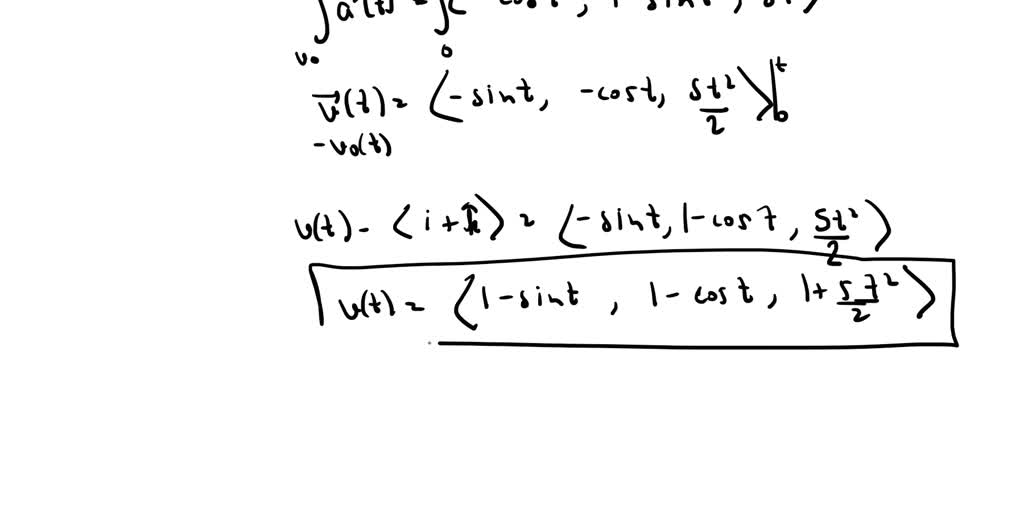 v₀ 0
v⃗(t) = ⟨-sint, -cost, 5t²/2⟩|₀ᵗ
-v₀(t)
v(t) - ⟨i + k⟩ = ⟨-sint, 1-cost, 5t²/2⟩
v(t) = ⟨1-sint, 1-cost, 1+5t²/2⟩